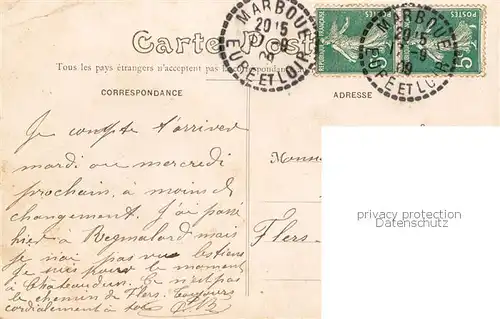 Carte Post
Tous les pays étrangers n'acceptent pas la correspondance
CORRESPONDANCE
ADRESSE
MARBOUE
20 15
27 - 9
09
EURE ET LOIR
MARBOUE
20 15
9
09
EURE ET LOIR
POSTES
5
POSTES
5
Je compte t'arriver
mardi ou mercredi
prochain, à moins de
changement. J'ai passé
hier à Regmalard mais
je n'ai pas vu les tiens
Je suis pour le moment
à Chateaudun. Ce n'est pas
le chemin de Flers. Toujours
cordialement à toi
Monsi
Flers-
privacy protection
Datenschutz